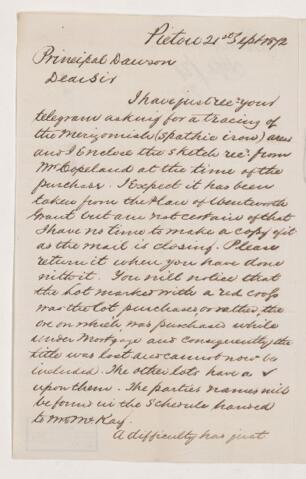 Pictou 21st Sept 1872
Principal Dawson
Dear Sir
I have just recd your
telegram asking for a tracing of
the Merigomish (Spathic iron) areas
and I Enclose the sketch recd from
Mr Copeland at the time of the
purchase. I expect it has been
taken from the Plan of Wentworth
Grant but am not certain of that
I have no time to make a copy of it
as the mail is closing. Please
return it when you have done
with it. You will notice that
the lot marked with a red cross
was the lot purchased or rather, the
ore on which, was purchased while
under Mortgage and consequently the
title was lost and cannot now be
included. The other lots have a √
upon them. The parties names will
be found in the Schedule handed
to Mr McKay.
A difficulty has just